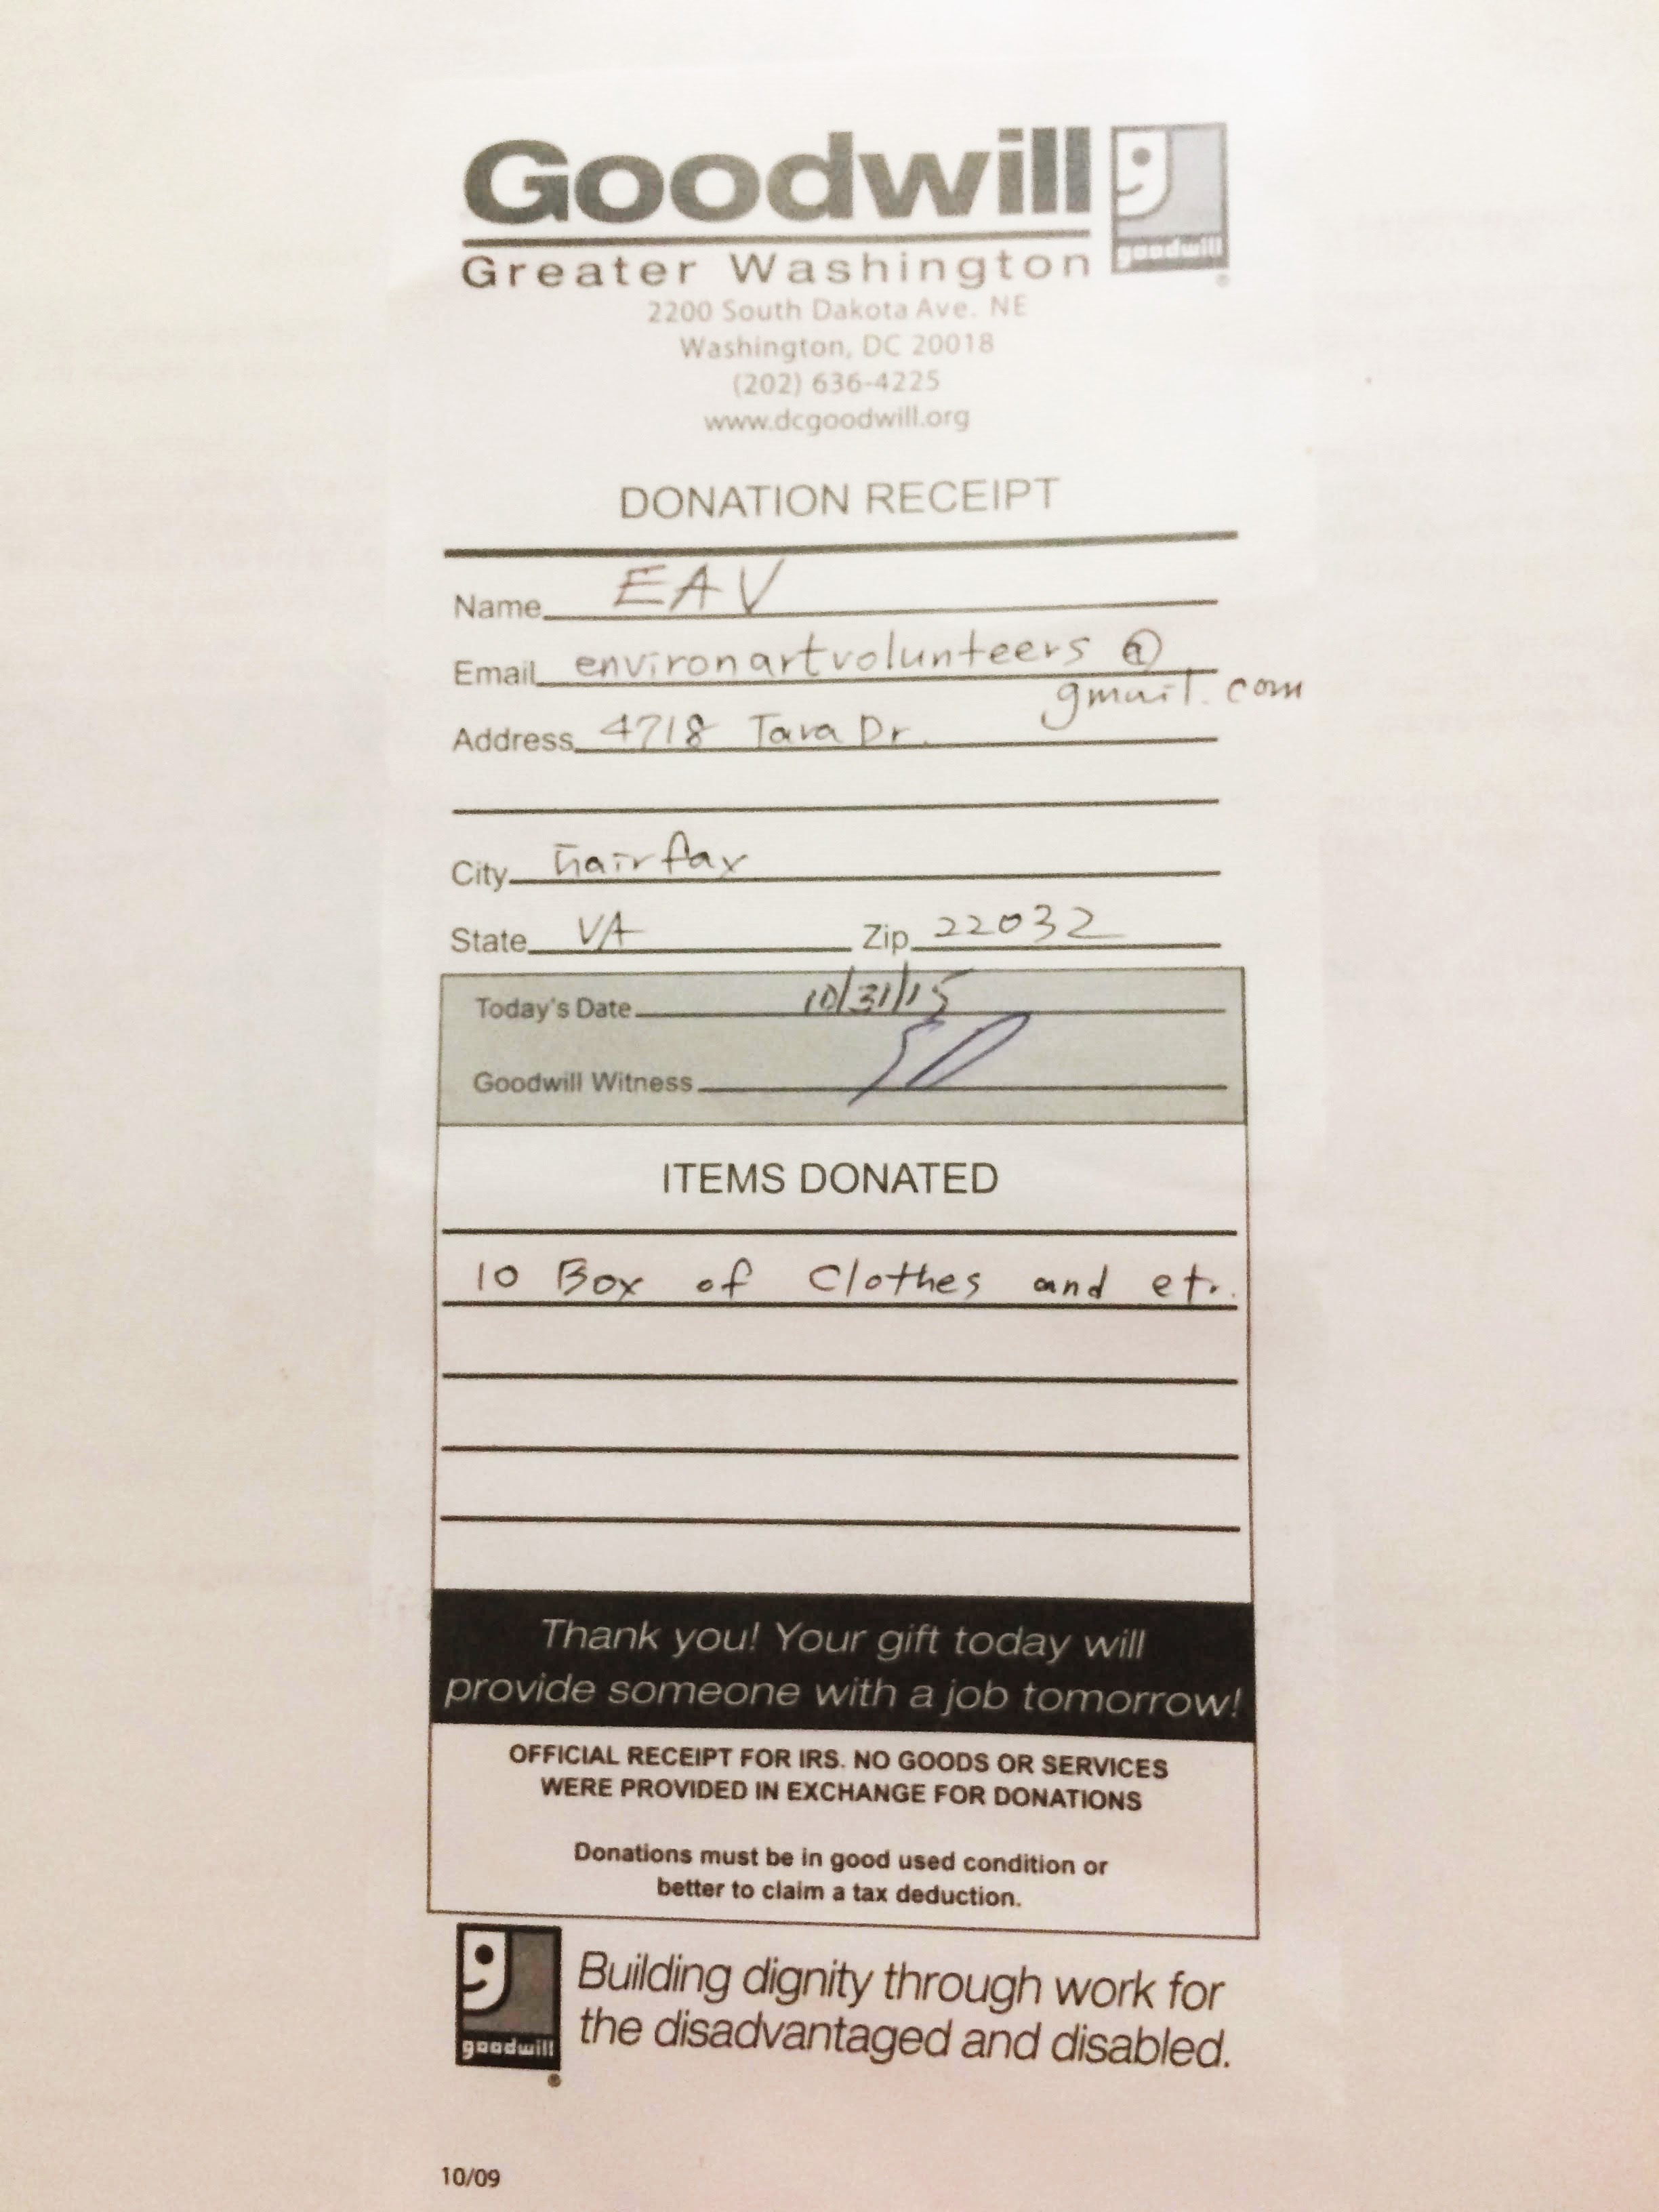 Goodwill
goodwill
Greater Washington
2200 South Dakota Ave. NE
Washington, DC 20018
(202) 636-4225
www.dcgoodwill.org
DONATION RECEIPT
Name EAV
Email environartvolunteers @
gmail.com
Address 4718 Tara Dr.
City Fairfax
State VA Zip 22032
Today's Date 10/31/15
Goodwill Witness
ITEMS DONATED
10 Box of Clothes and etc.
Thank you! Your gift today will
provide someone with a job tomorrow!
OFFICIAL RECEIPT FOR IRS. NO GOODS OR SERVICES
WERE PROVIDED IN EXCHANGE FOR DONATIONS
Donations must be in good used condition or
better to claim a tax deduction.
goodwill
Building dignity through work for
the disadvantaged and disabled.
10/09